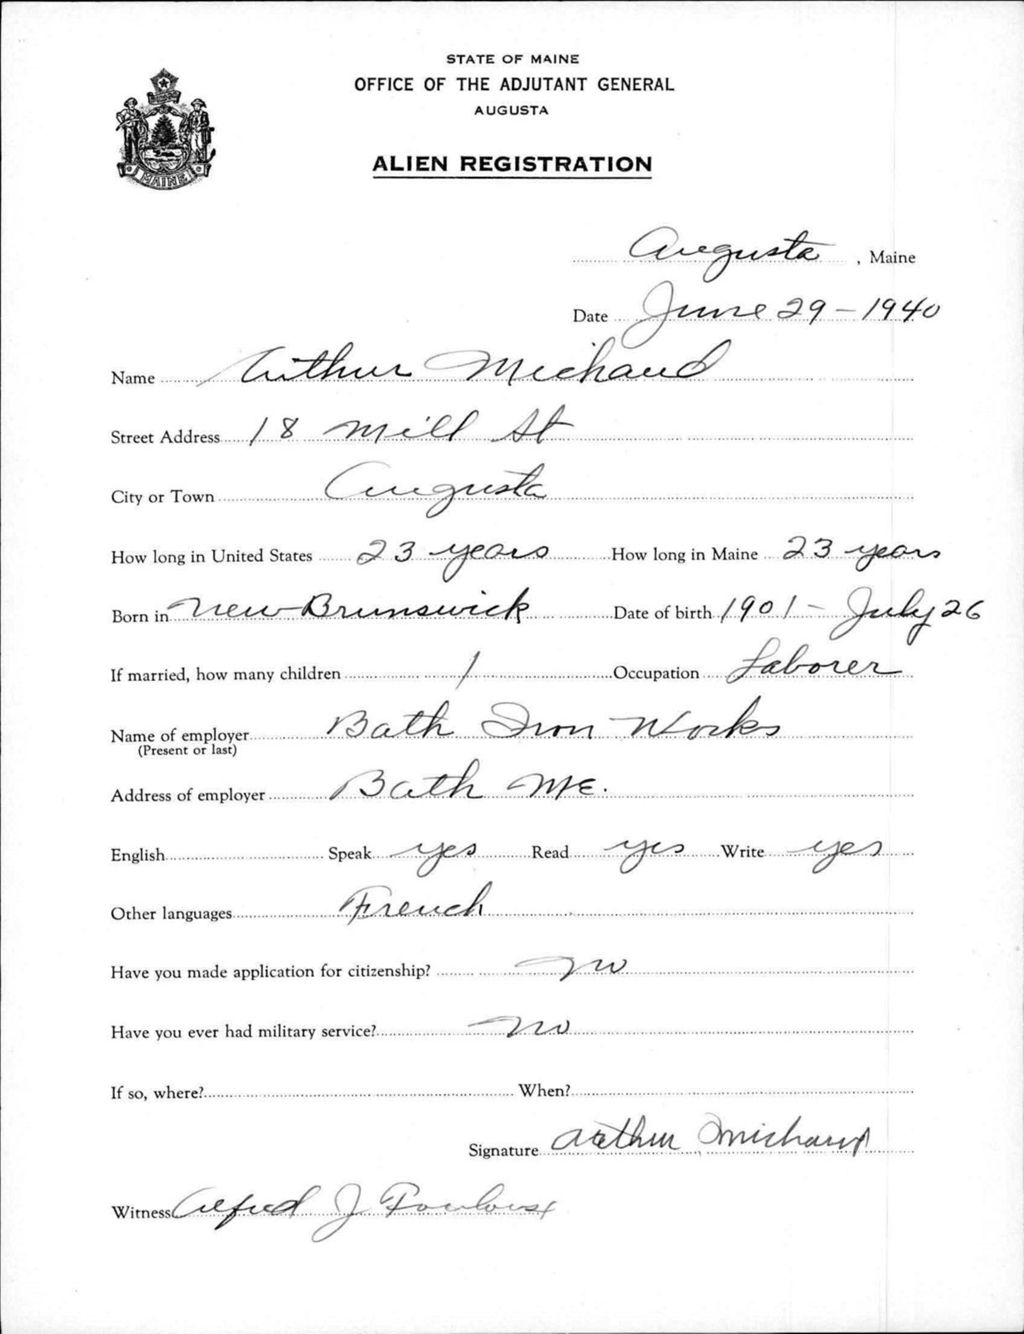 STATE OF MAINE
OFFICE OF THE ADJUTANT GENERAL
AUGUSTA
ALIEN REGISTRATION
MAINE
Augusta, Maine
Date June 29 - 1940
Name Arthur Michaud
Street Address 18 Mill St
City or Town Augusta
How long in United States 23 years How long in Maine 23 years
Born in New Brunswick Date of birth 1901 - July 26
If married, how many children 1 Occupation Laborer
Name of employer Bath Iron Works
(Present or last)
Address of employer Bath ME.
English Speak yes Read yes Write yes
Other languages French
Have you made application for citizenship? no
Have you ever had military service? no
If so, where? When?
Signature Arthur Michaud
Witness Alfred J